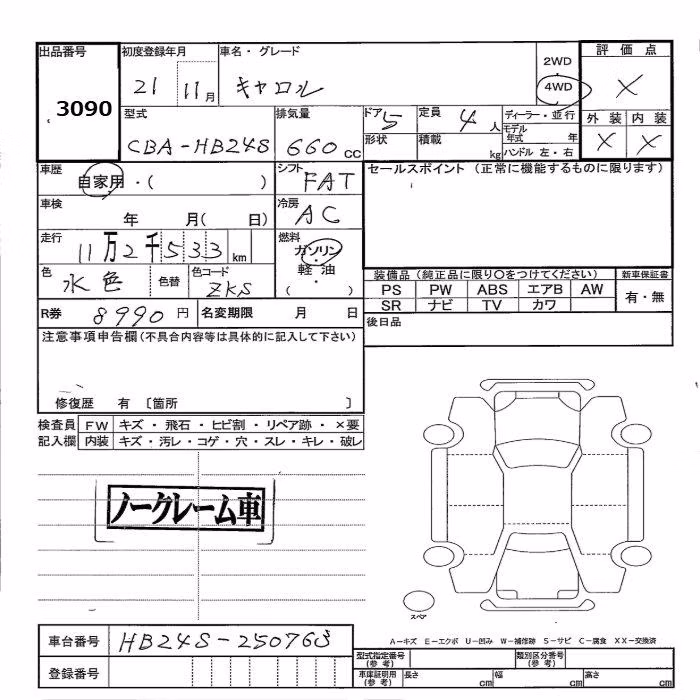 出品番号 初度登録年月 車名・グレード 2WD 評価点
3090 21 11月 キャロル 4WD X
型式 排気量 ドア 5 定員 4人 ディーラー・並行 外装 内装
CBA-HB24S 660cc 形状 積載 kg モデル年式 年 X X
ハンドル 左・右
車歴 シフト セールスポイント (正常に機能するものに限ります)
自家用・( ) FAT
車検 冷房
年 月( 日) AC
走行 燃料
11万2千533km ガソリン
色 色替 色コード 軽油 装備品 (純正品に限り○をつけてください) 新車保証書
水色 ZKS ( ) PS PW ABS エアB AW 有・無
SR ナビ TV カワ
R券 8990円 名変期限 月 日 後日品
注意事項申告欄(不具合内容等は具体的に記入して下さい)
修復歴 有 〔箇所 〕
検査員 FW キズ・飛石・ヒビ割・リペア跡・×要
記入欄 内装 キズ・汚レ・コゲ・穴・スレ・キレ・破レ
ノークレーム車
スペア
A-キズ E-エクボ U-凹み W-補修跡 S-サビ C-腐食 XX-交換済
車台番号 HB24S-250763
型式指定番号(参考) 類別区分番号(参考)
登録番号 車庫証明用(参考) 長さ cm 幅 cm 高さ cm